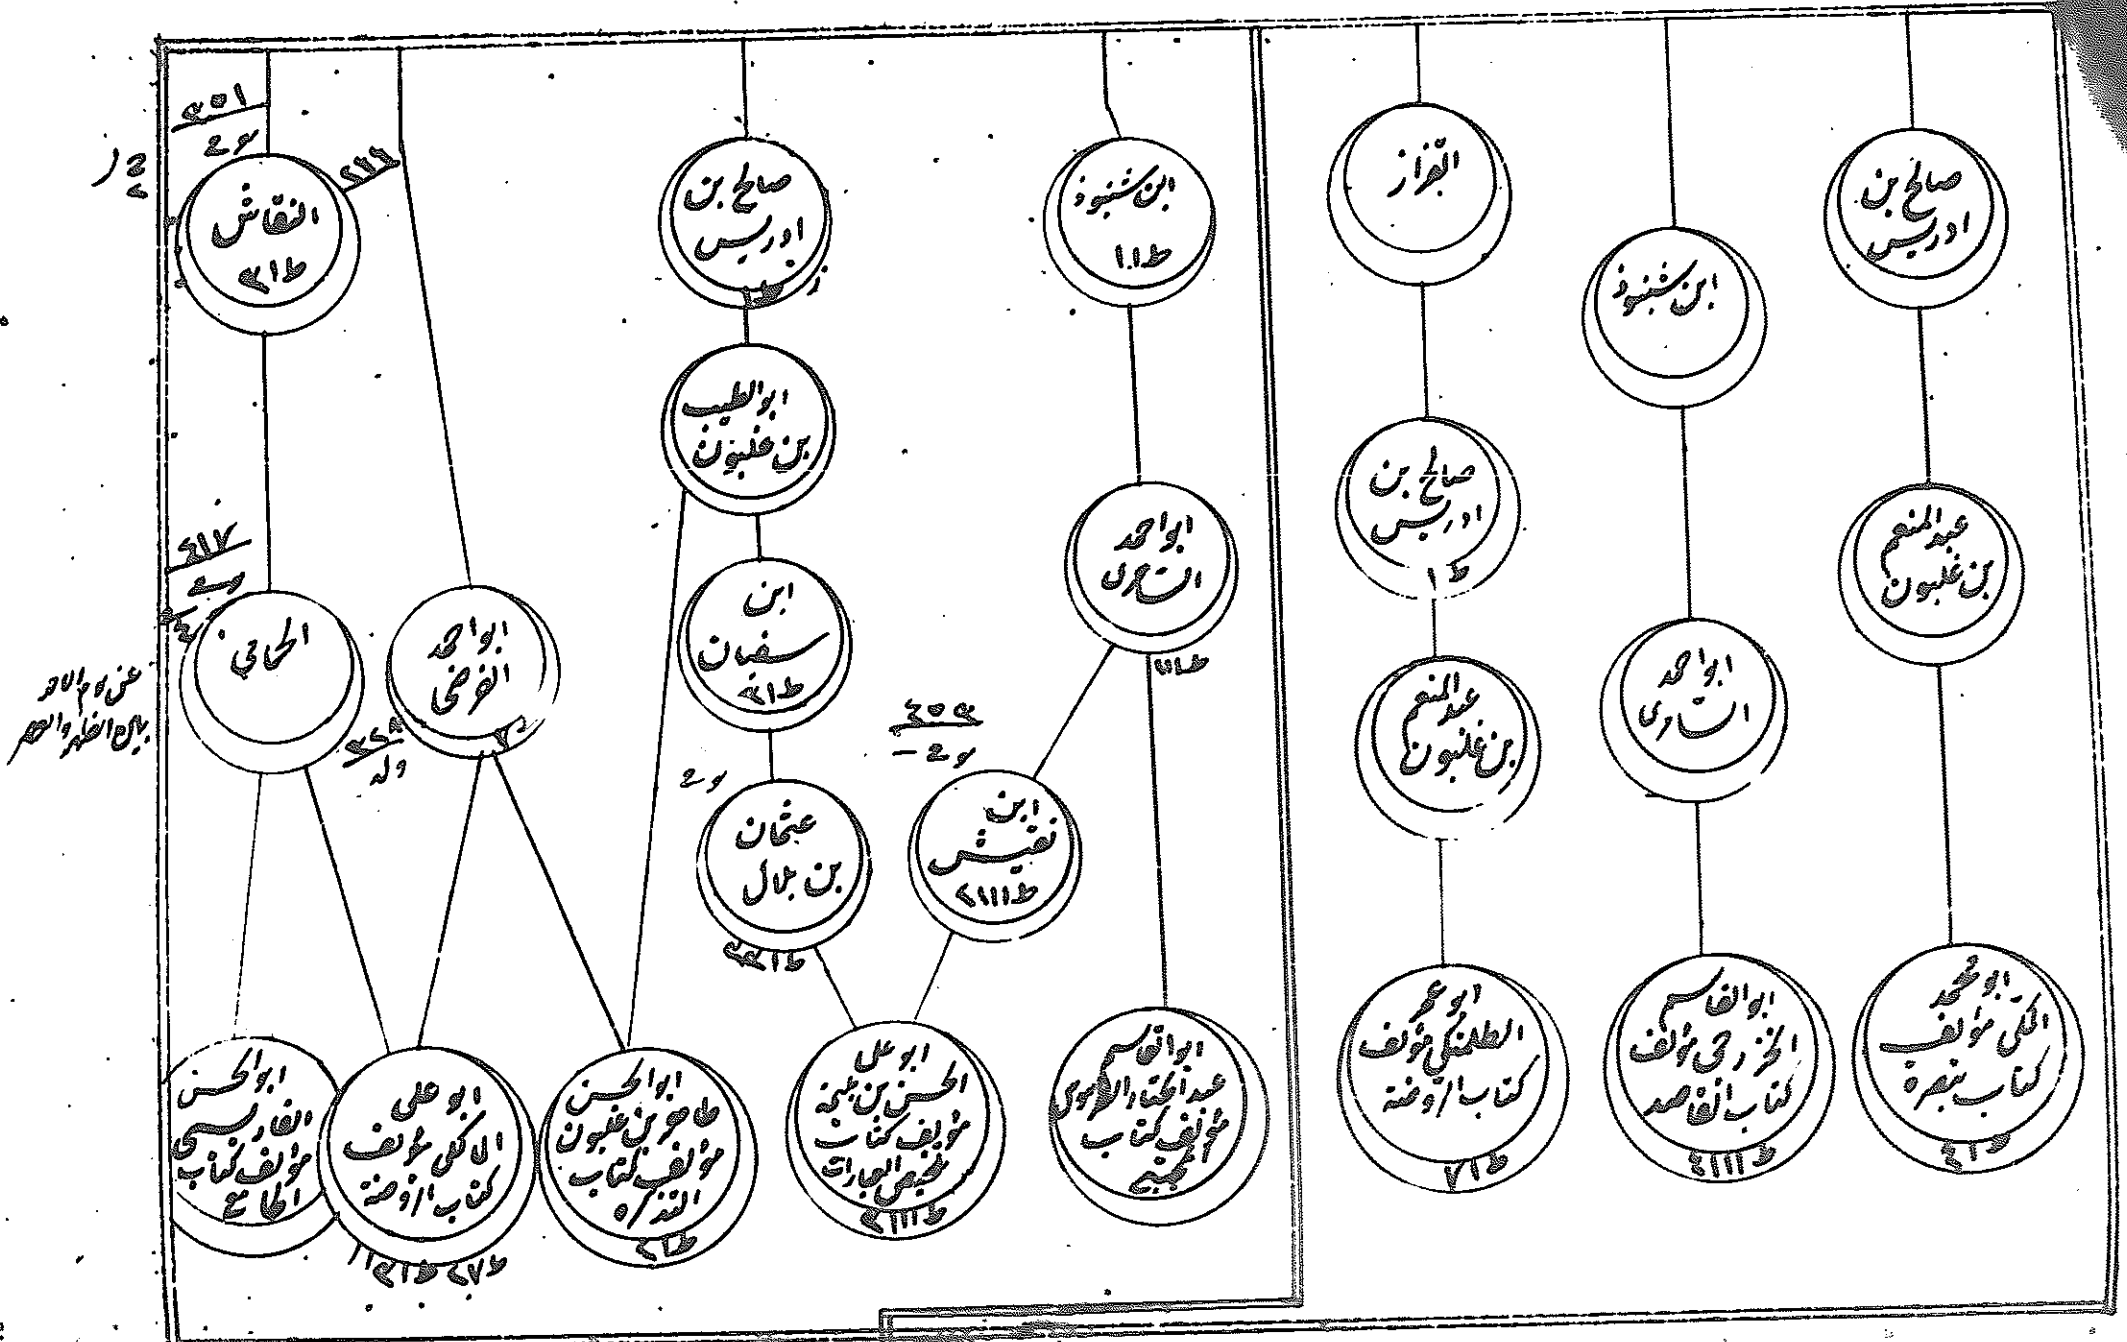 صالح بن
ادريس
عبدالمنعم
بن غلبون
ابومحمد
المكى مؤلف
كتاب تبصرة
ابن شنبوذ
ابواحمد
السامرى
ابوالقاسم
الخزرجى مؤلف
كتاب القاصد
القزاز
صالح بن
ادريس
ط١
عبدالمنعم
بن غلبون
ابوعمر
الطلمنكى مؤلف
كتاب الروضة
ط١٧
ابن شنبوذ
ابواحمد
السامرى
ابوالقاسم
عبدالجبار الطرسوسى
مؤلف كتاب
المجتبى
ابن
نفيس
صالح بن
ادريس
ابوالطيب
بن غلبون
ابن
سفيان
عثمان
بن بلال
ابوعلى
الحسن بن بليمة
مؤلف كتاب
تلخيص العبارات
ابواحمد
الفرضى
ابوالحسن
طاهر بن غلبون
مؤلف كتاب
التذكره
النقاش
الحمامي
ابوعلى
المالكى مؤلف
كتاب الروضة
ابوالحسن
الفارسى
مؤلف كتاب
الجامع
بين الظهر والعصر